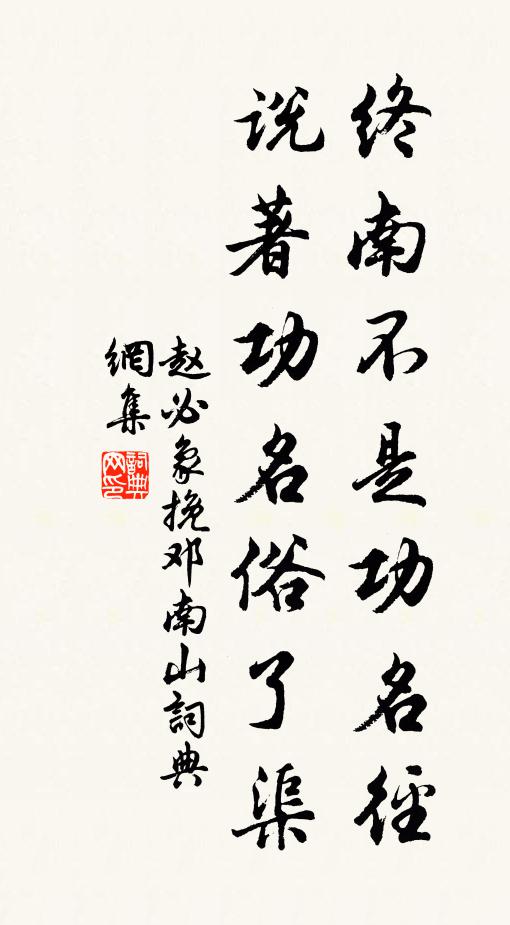 终南不是功名径
说著功名俗了渠
赵必象挽邓南山詞典
網集
詞典
网印